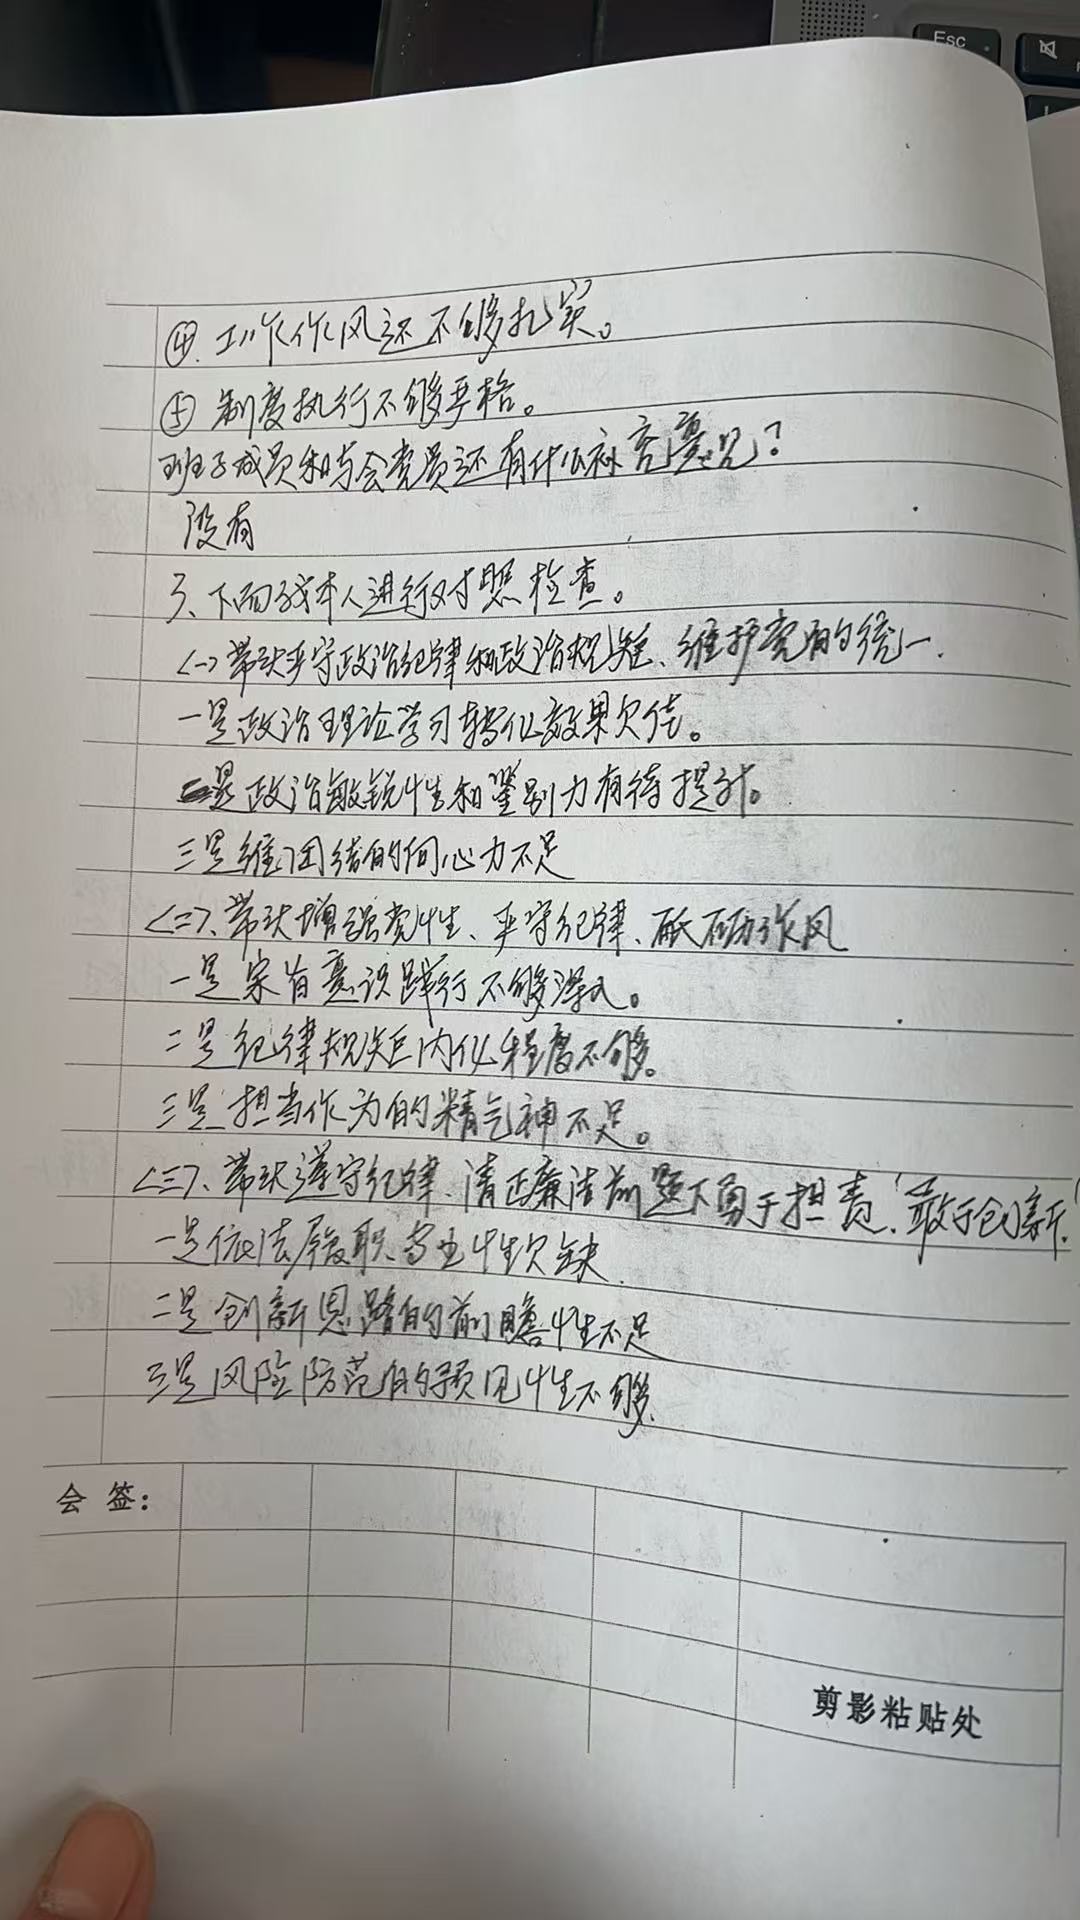 Esc
④.工作作风还不够扎实。
⑤制度执行不够严格。
班子成员和与会党员还有什么补充意见？
没有
3、下面我本人进行对照检查。
<一>带头严守政治纪律和政治规矩、维护党的统一.
一是政治理论学习转化效果欠佳。
二是政治敏锐性和鉴别力有待提升。
三是维团结的向心力不足
<二>、带头增强党性、严守纪律、砥砺作风
一是宗旨意识践行不够深入。
二是纪律规矩内化程度不够。
三是担当作为的精气神不足。
<三>、带头遵守纪律、清正廉洁前题下勇于担责、敢于创新.
一是依法履职 性欠缺.
二是创新思路的前瞻性不足
三是风险防范的预见性不够.
会 签：
剪影粘贴处